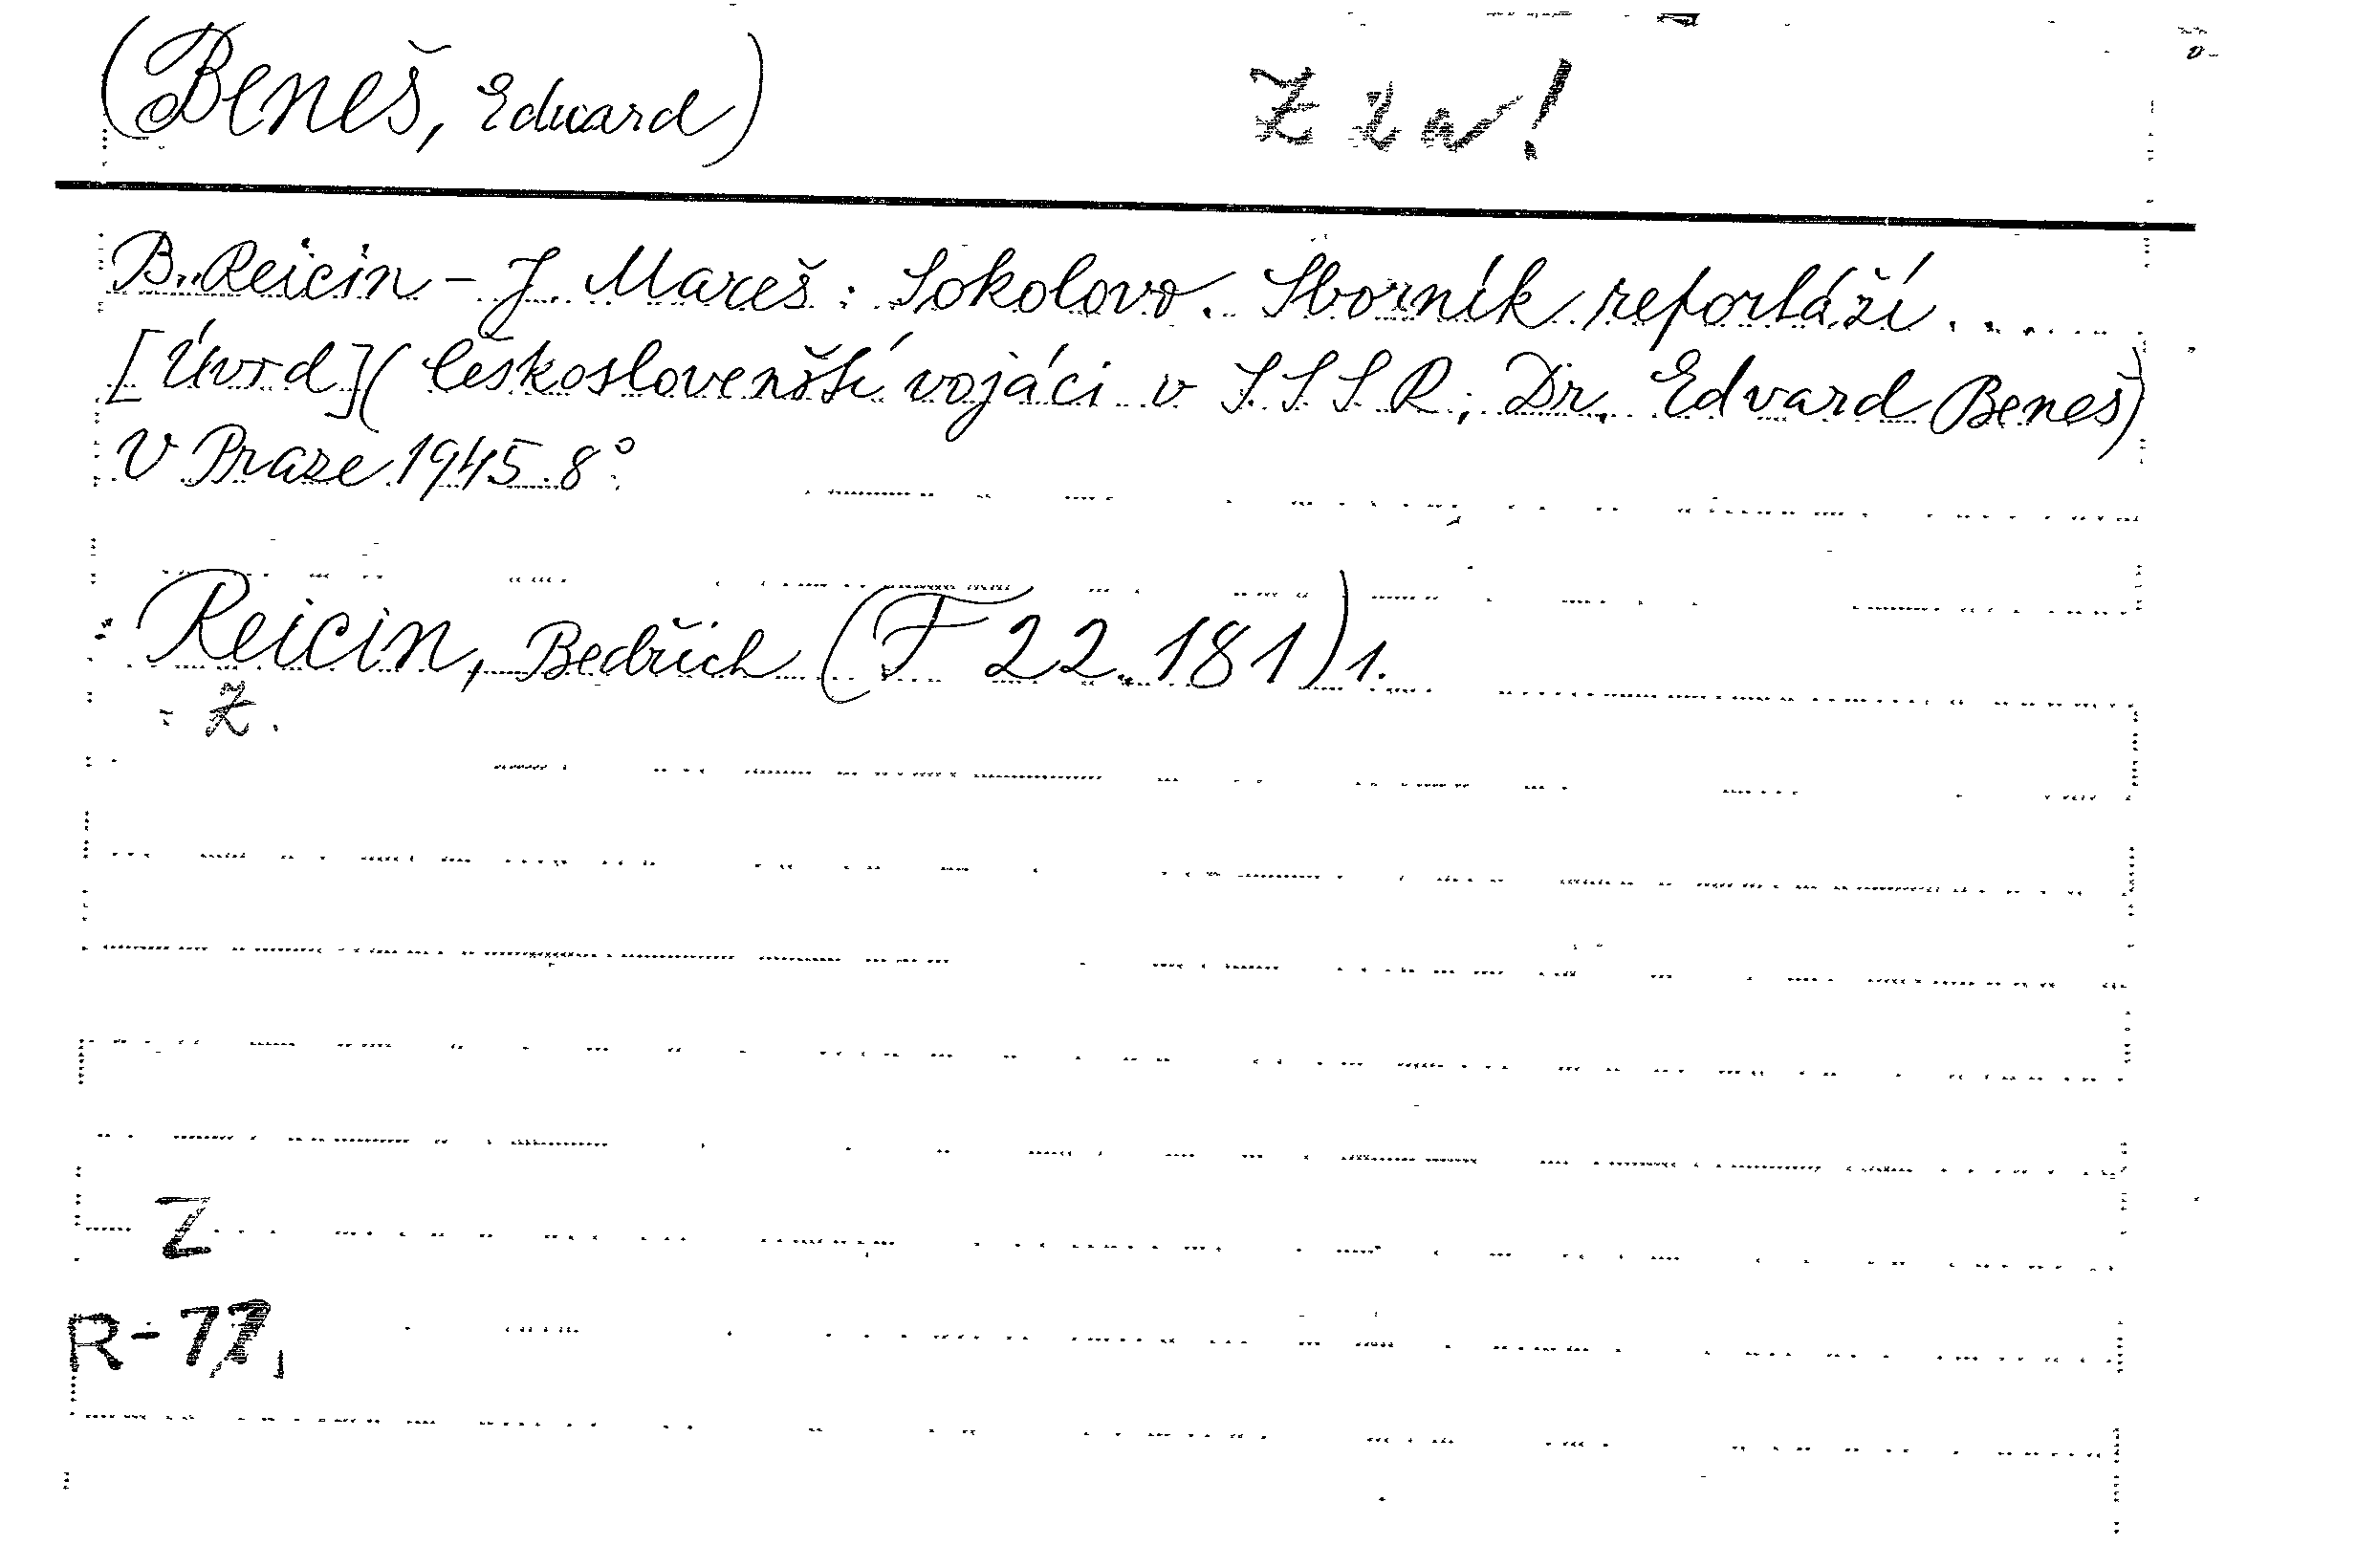 (Beneš, Eduard)
B. Reicin – J. Mareš: Sokolovo. Sborník reportáží.....
[Úvod] (Českoslovenští vojáci v SSSR, Dr. Edvard Beneš)
V Praze 1945. 8°.
Reicin, Bedřich (F 22.181) 1.
Ž.
Z
R-77,